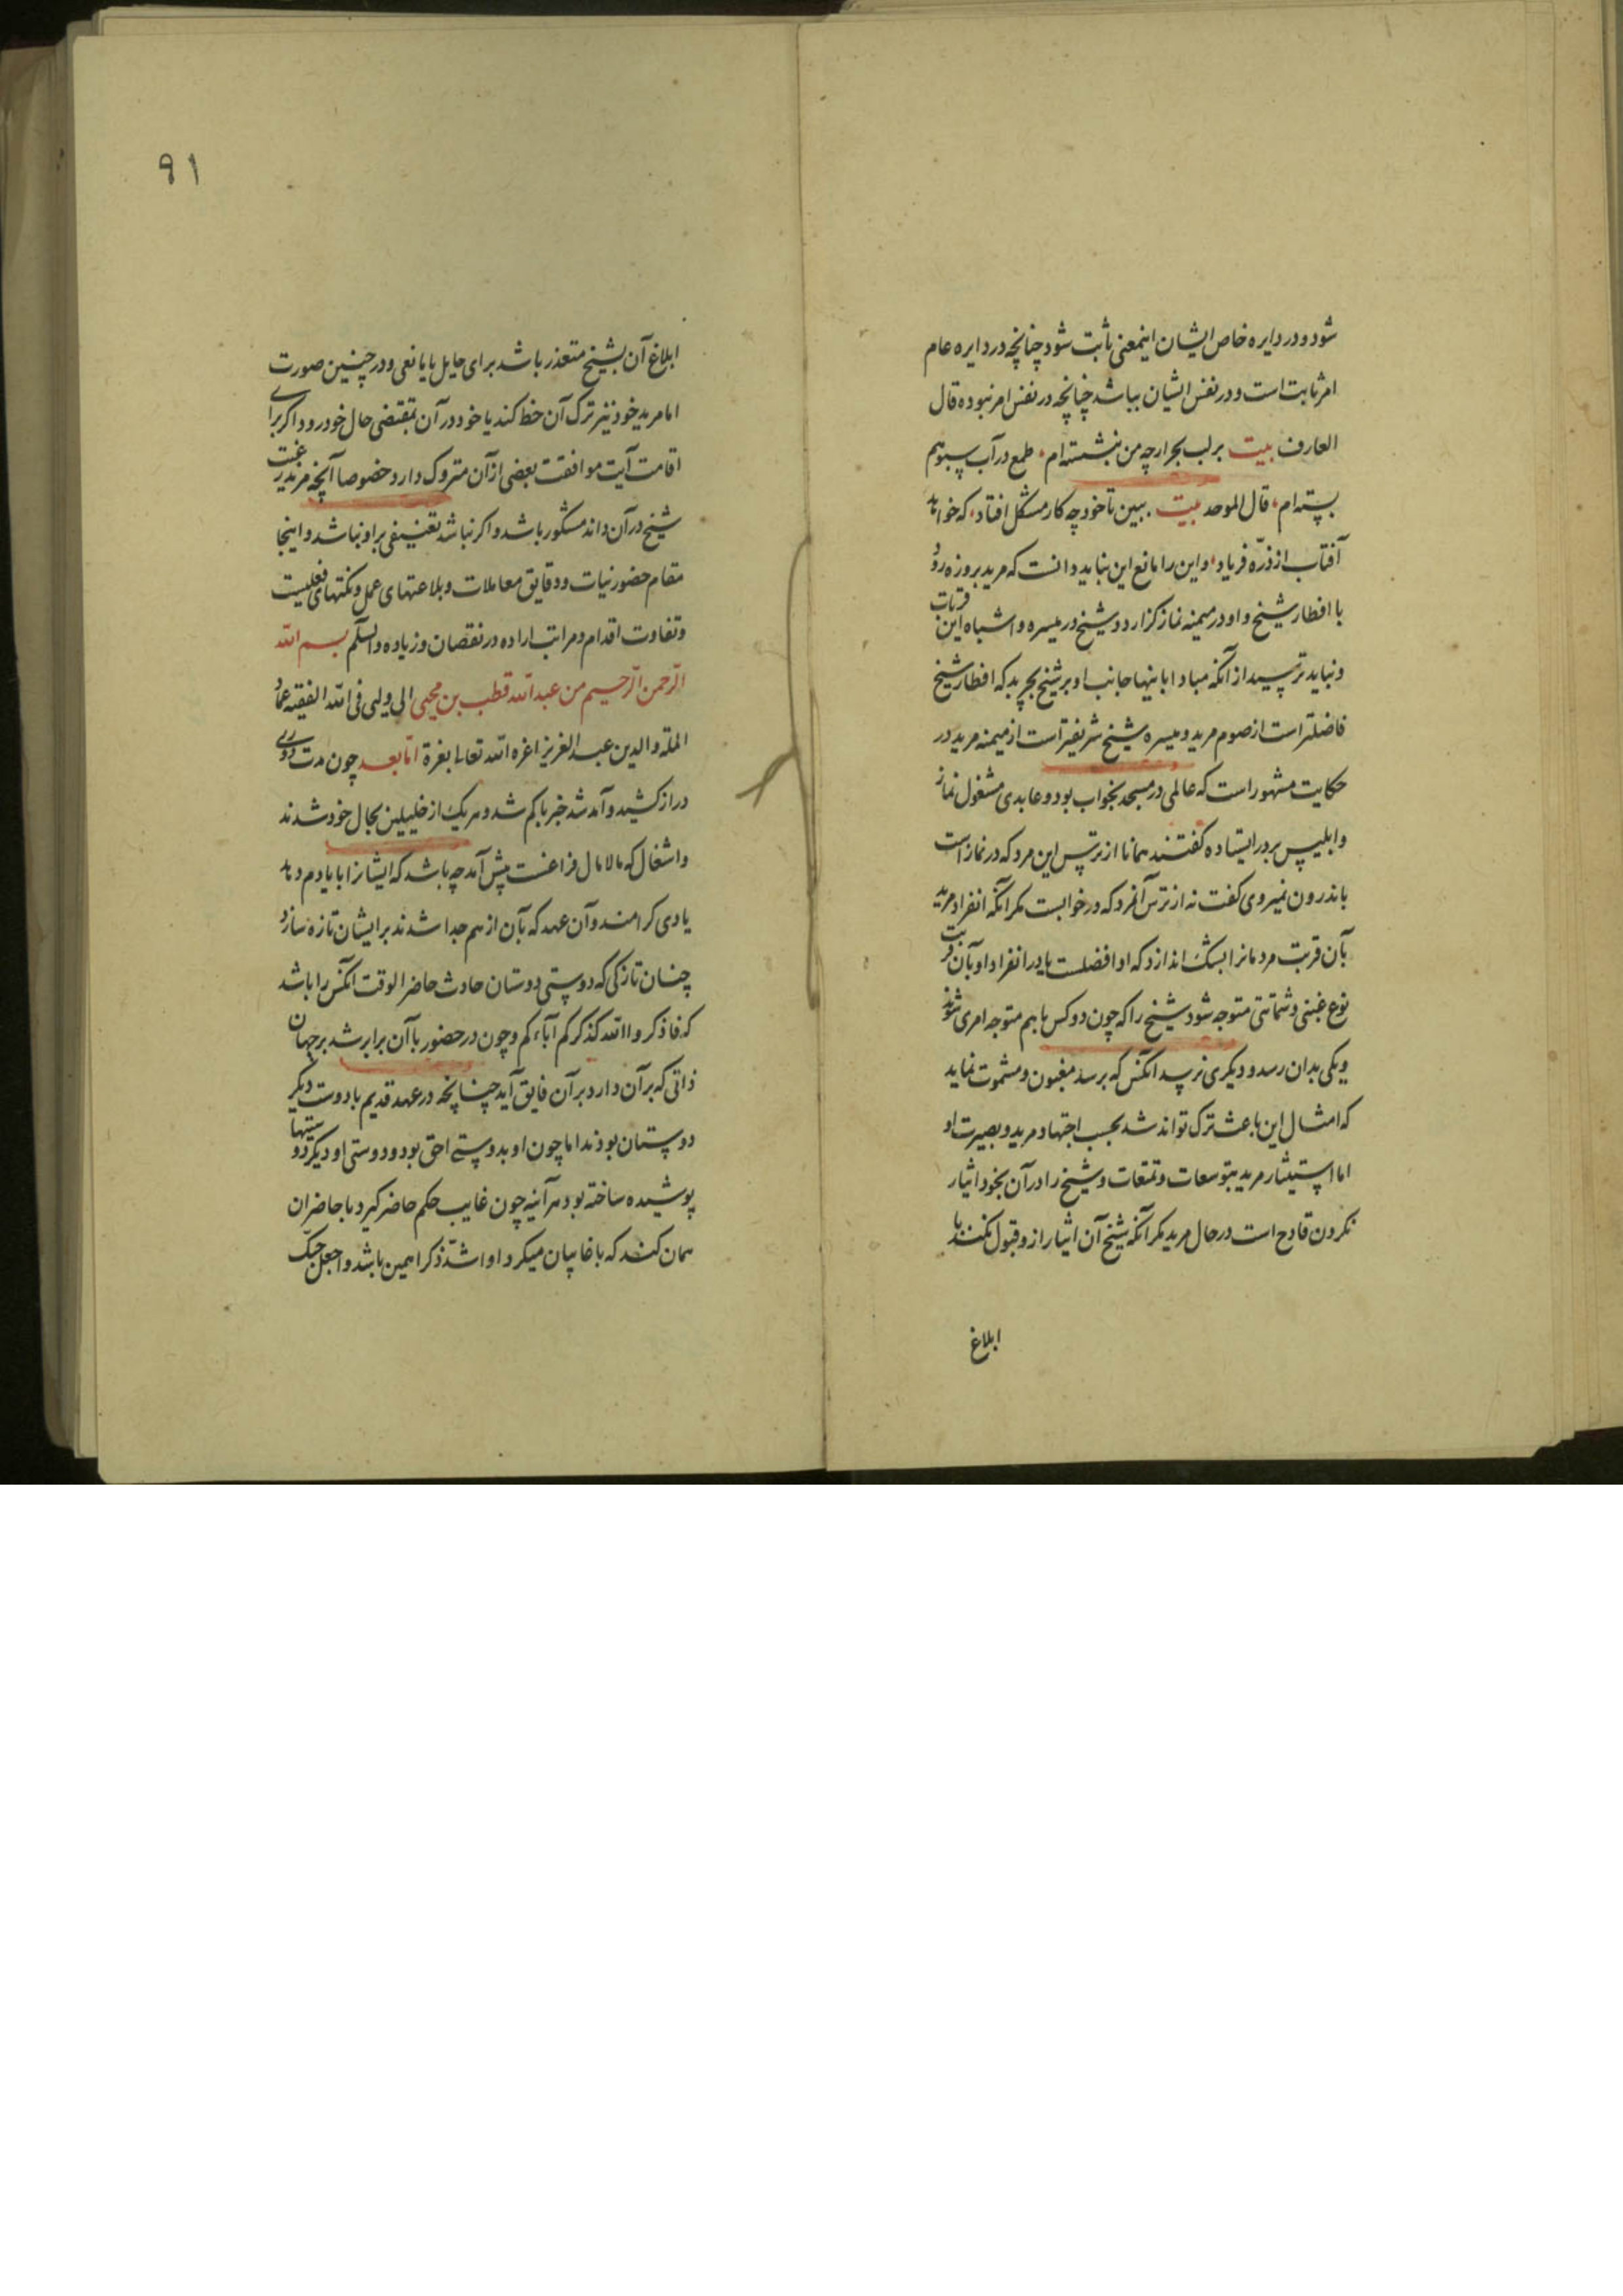 شود و در دایره خاص ایشان اینمعنی ثابت شود چنانچه در دایره عام
امر ثابت است و در نفس ایشان بباشد چنانچه در نفس امر نبوده قال
العارف بیت بر لب بحر ارچه من بنشسته‌ام طمع در آب سبو هم
بسته‌ام قال الموحد بیت ببین تا خود چه کار مشکل افتاد که خواهد
آفتاب از ذرّه فریاد و این را مانع این نباید دانست که مرید بروزه رود
با افطار شیخ و او در میمنه نماز گزارد و شیخ در میسره و اشباه این قربات
و نباید ترسید از آنکه مبادا باینها جانب او بر شیخ بچربد که افطار شیخ
فاضلتر است از صوم مرید و میسره شیخ شریفتر است از میمنه مرید در
حکایت مشهور است که عالمی در مسجد بخواب بود و عابدی مشغول نماز
و ابلیس بر در ایستاده گفتند همانا از ترس این مرد که در نماز است
باندرون نمیروی گفت نه از ترس آنمرد که در خوابست مگر آنکه انفراد مرید
بآن قربت مردمانرا بشک اندازد که او افضلست یا در انفراد او بآن قربت
نوع غبنی و شماتتی متوجه شود شیخ را که چون دو کس با هم متوجه امری شوند
و یکی بدان رسد و دیگری نرسد آنکس که نرسد مغبون و مشموت نماید
که امثال این باعث ترک تواند شد بحسب اجتهاد مرید و بصیرت او
اما استیثار مرید بتوسعات و تمتعات و شیخ را در آن بخود ایثار
نکردن قادح است در حال مرید مگر آنکه شیخ آن ایثار ازو قبول نکند یا
ابلاغ
۹۱
ابلاغ آن بشیخ متعذر باشد برای حایل یا مانعی و در چنین صورت
اما مرید خود نیز ترک آن حظ کند یا خود در آن بمقتضی حال خود رود اگر برای
اقامت آیت موافقت بعضی از آن متروک دارد خصوصا آنچه مرید رغبت
شیخ در آن داند مشکور باشد و اگر نباشد تعنیفی بر او نباشد و اینجا
مقام حضور نیات و دقایق معاملات و بلاغتهای عمل و نکتهای فعلیست
و تفاوت اقدام و مراتب اراده در نقصان و زیاده والسلم بسم الله
الرّحمن الرّحیم من عبد الله قطب بن محیی الی ولیی فی الله الفقیه عماد
المله و الدین عبد العزیز اعزه الله تعالی بعزة امّا بعد چون مدت دوری
دراز کشید و آمد شد خبر با کم شد و هر یک از خلیلین بحال خود شدند
و اشغال که مالامال فراغست پیش آمد چه باشد که ایشانرا با یاد هم دهد
یادی کرامند و آن عهد که بآن از هم جدا شدند بر ایشان تازه سازد
چنان تازگی که دوستی دوستان حادث حاضر الوقت آنکس را باشد
که فاذکروا الله کذکرکم آباءکم و چون در حضور با آن برابر شد برجهان
ذاتی که بر آن دارد بر آن فایق آید چنانچه در عهد قدیم با دوست دیگر
دوستان بودند اما چون او بدوستی احق بود و دوستی او دیگر دوستیها
پوشیده ساخته بود هر آینه چون غایب حکم حاضر گیرد با حاضران
همان کند که با غایبان میکرد او اشدّ ذکرا همین باشد و اجعل حبّک